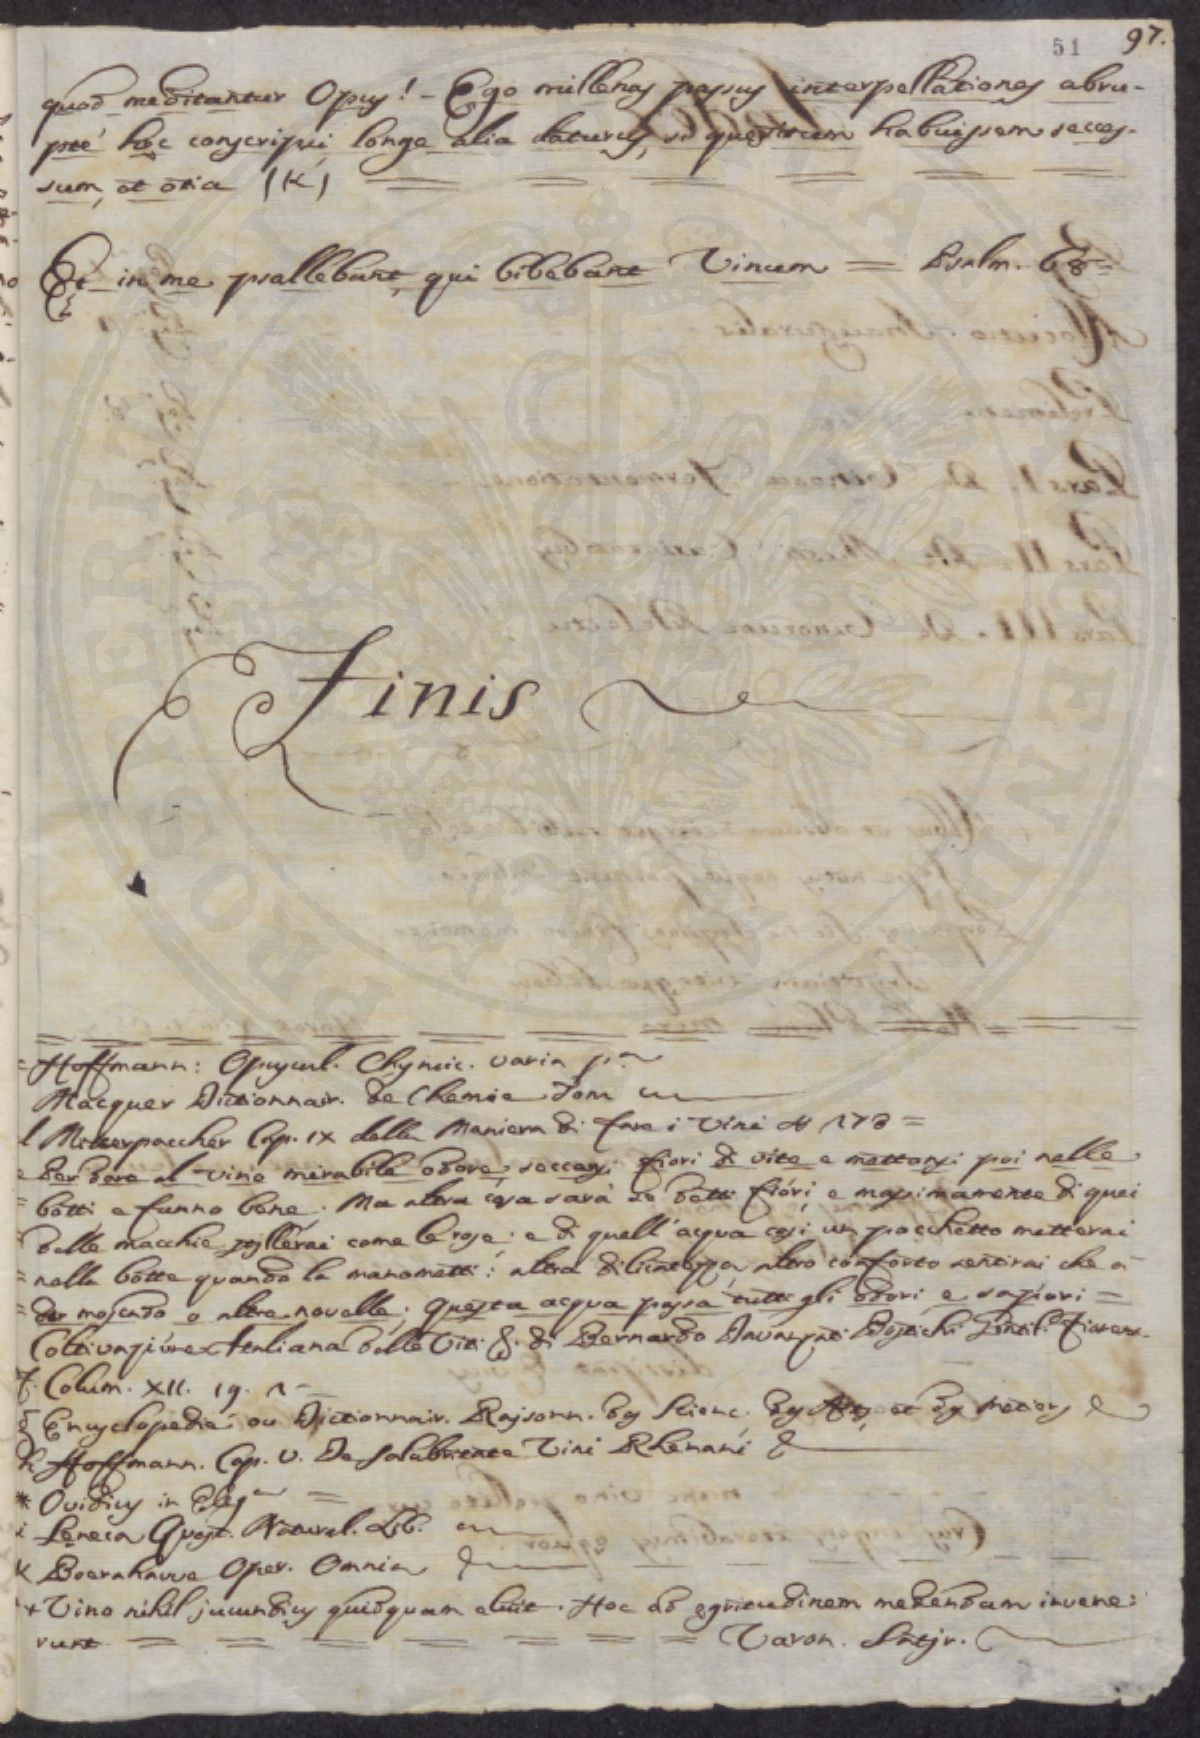 51 97.
quod meditantur Opus! - Ego millenas passus interpellationes abru-
ptè hoc conscripsi, longe alia daturus, si quæsitum habuissem seces-
sum, et otia (K)
Et in me psallebant, qui bibebant Vinum = Psalm. 68
Finis
Hoffmann: Opuscul. Chymic. varia p.
Macquer Dictionnair. de Chemie Tom
l Mitterpaccher Cap. IX della Maniera di fare i Vini N 178 =
e Per dare al vino mirabile odore, seccansi fiori di vite e mettonsi poi nelle
botti e fanno bene. Ma altra cosa sarà se detti fióri, e massimamente di quei
delle macchie stillerai come le rose: e di quell'acqua così un pocchetto metterai
nella botte quando la manometti: altra dilicatezza, altro conforto sentirai che
der moscado o altre novelle; questa acqua passa tutti gli odori e sapóri =
Coltivazióne Italiana delle Viti &. di Bernardo Davanzati Bostichi Gentil. Fioren.
f. Colum. XII. 19.
g Encyclopedie ou Dictionnair. Raisonn. des Scienc. des Arts et des Metiers
h Hoffmann. Cap. V. De Salubritate Vini Rhenani
* Ovidius in Eleg
i Seneca Quæst. Natural. Lib.
K Boerahavve Oper. Omnia
+ Vino nihil jucundius quidquam eluit. Hoc ad egritudinem medendam invene:
runt = = = = = = = = Varon. Satyr.